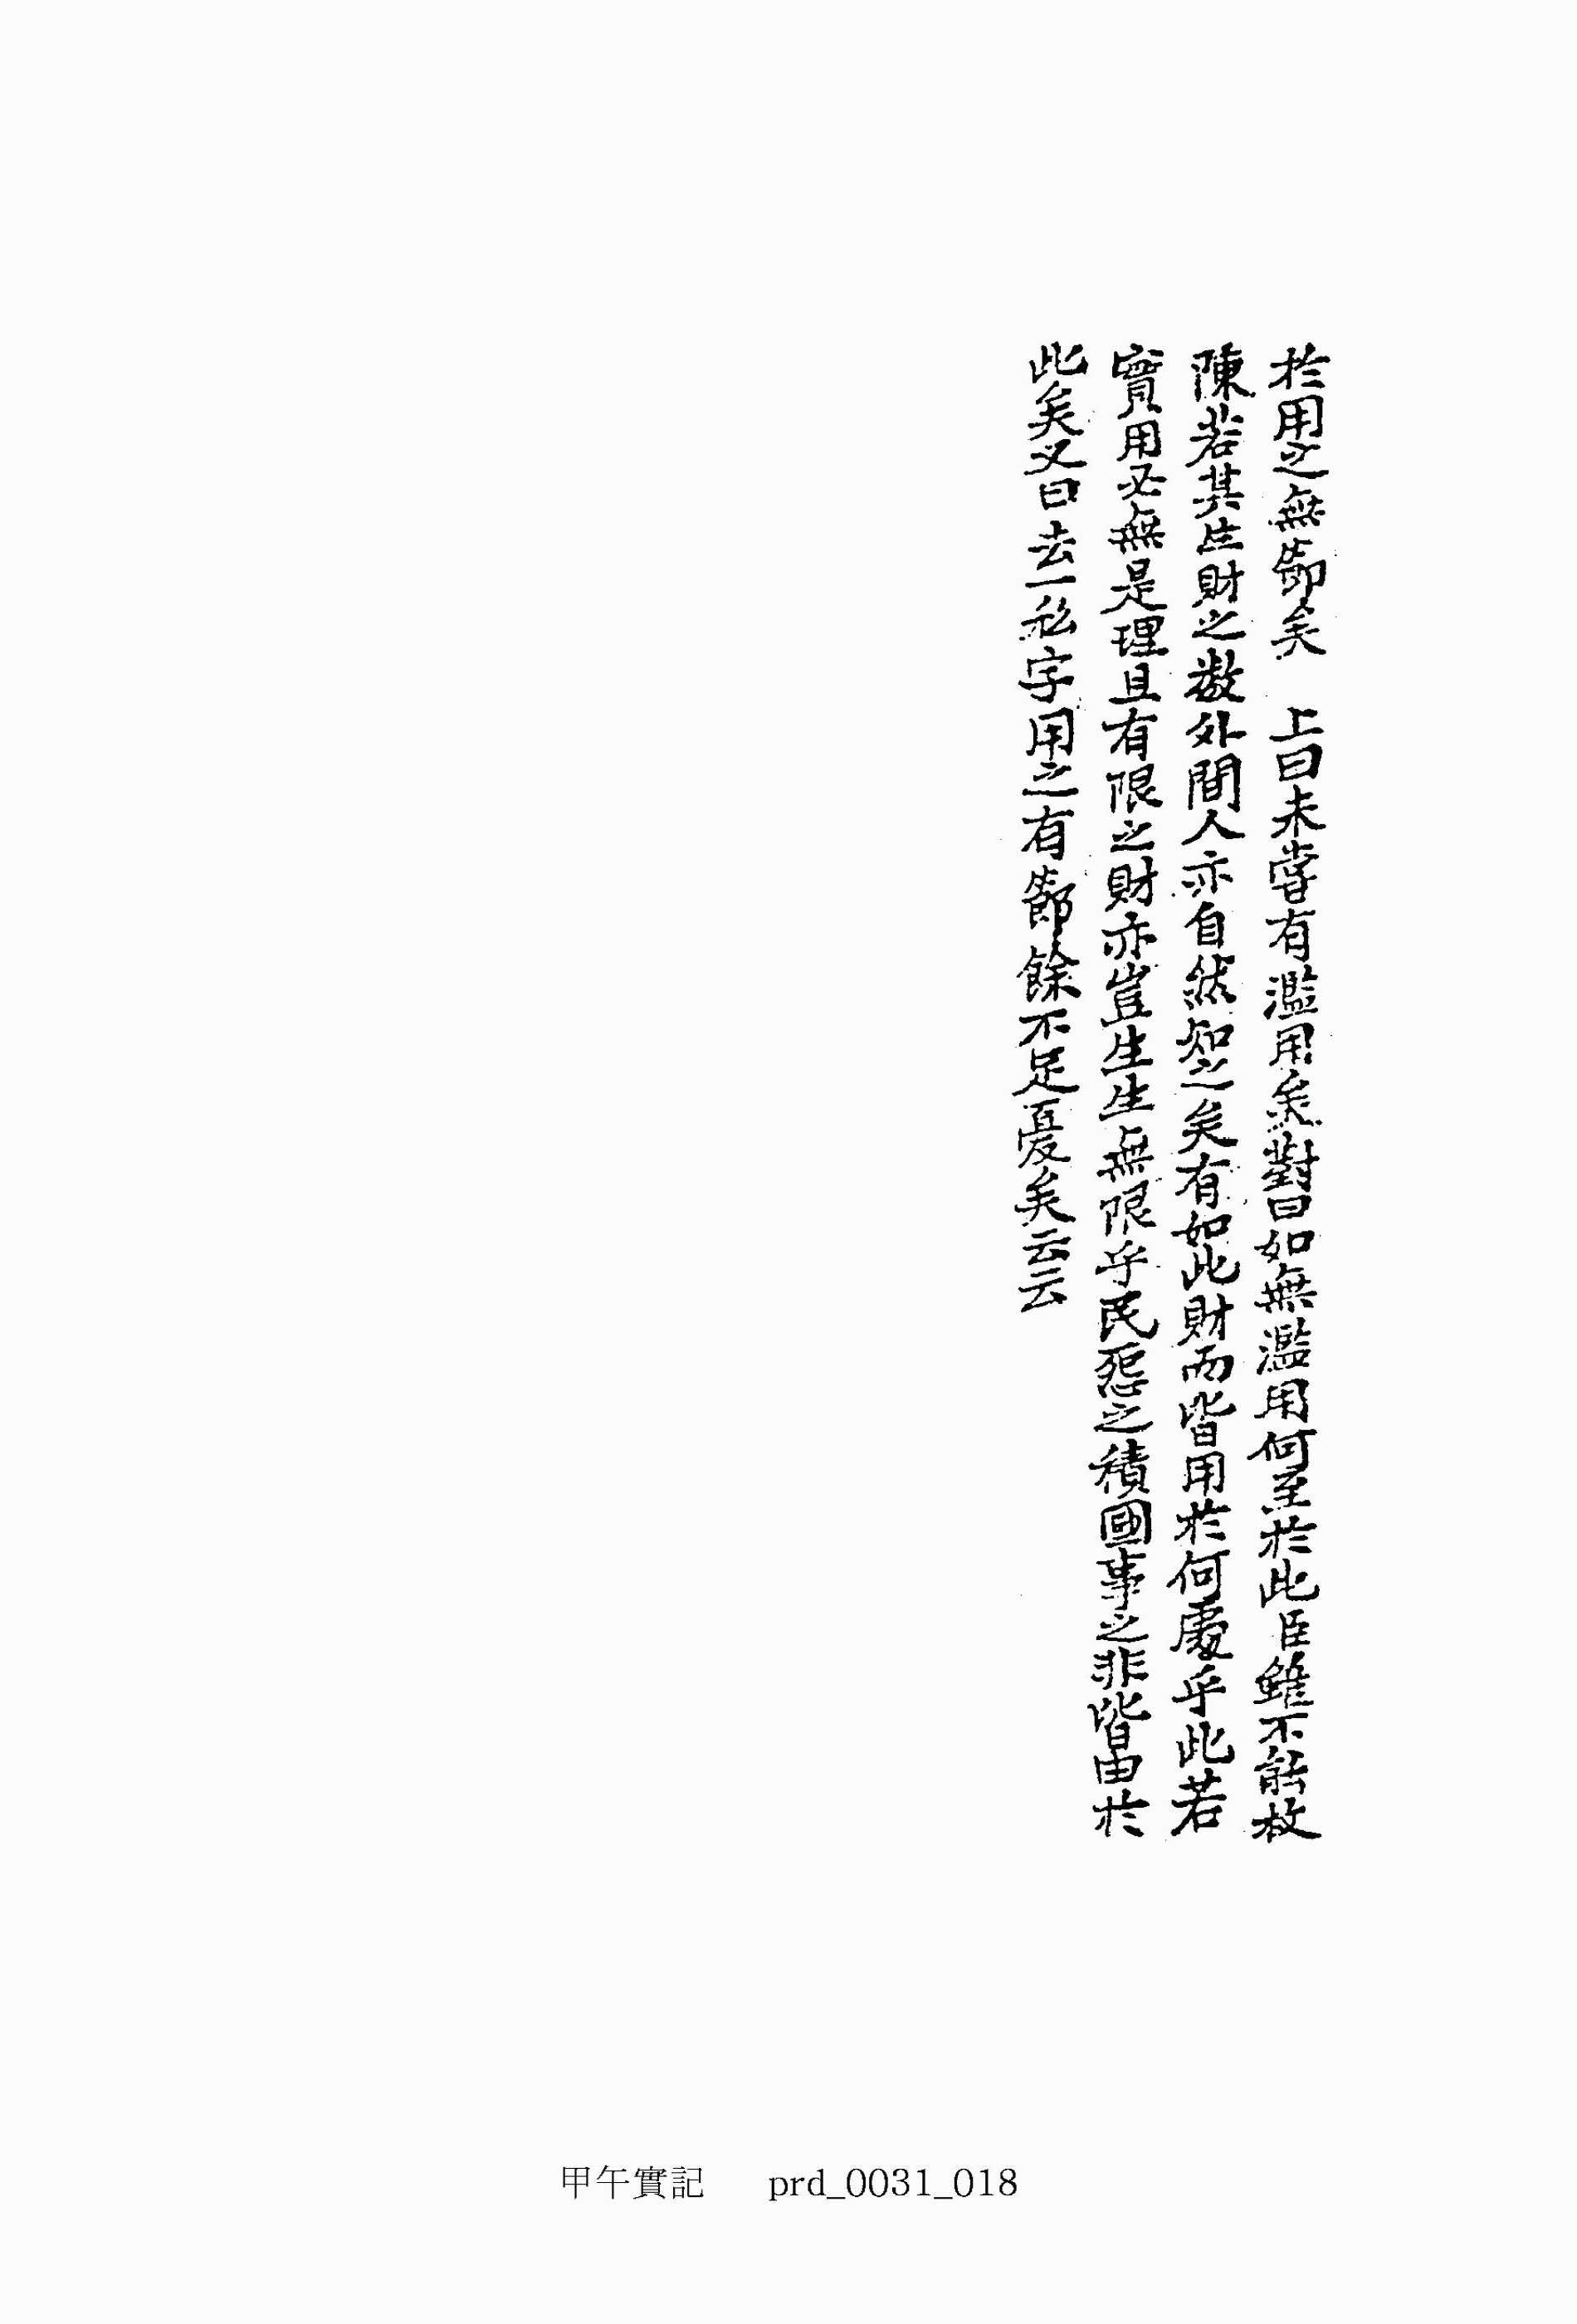 於用之無節矣　上曰未嘗有濫用矣對曰如無濫用何至於此臣雖不能枚
陳若其生財之數外間人亦自然知之矣有如此財而皆用於何處乎此若
實用必無是理且有限之財亦豈生生無限乎民怨之積國事之非皆由於
此矣又曰去一私字用之有節餘不足憂矣云云
甲午實記　prd_0031_018